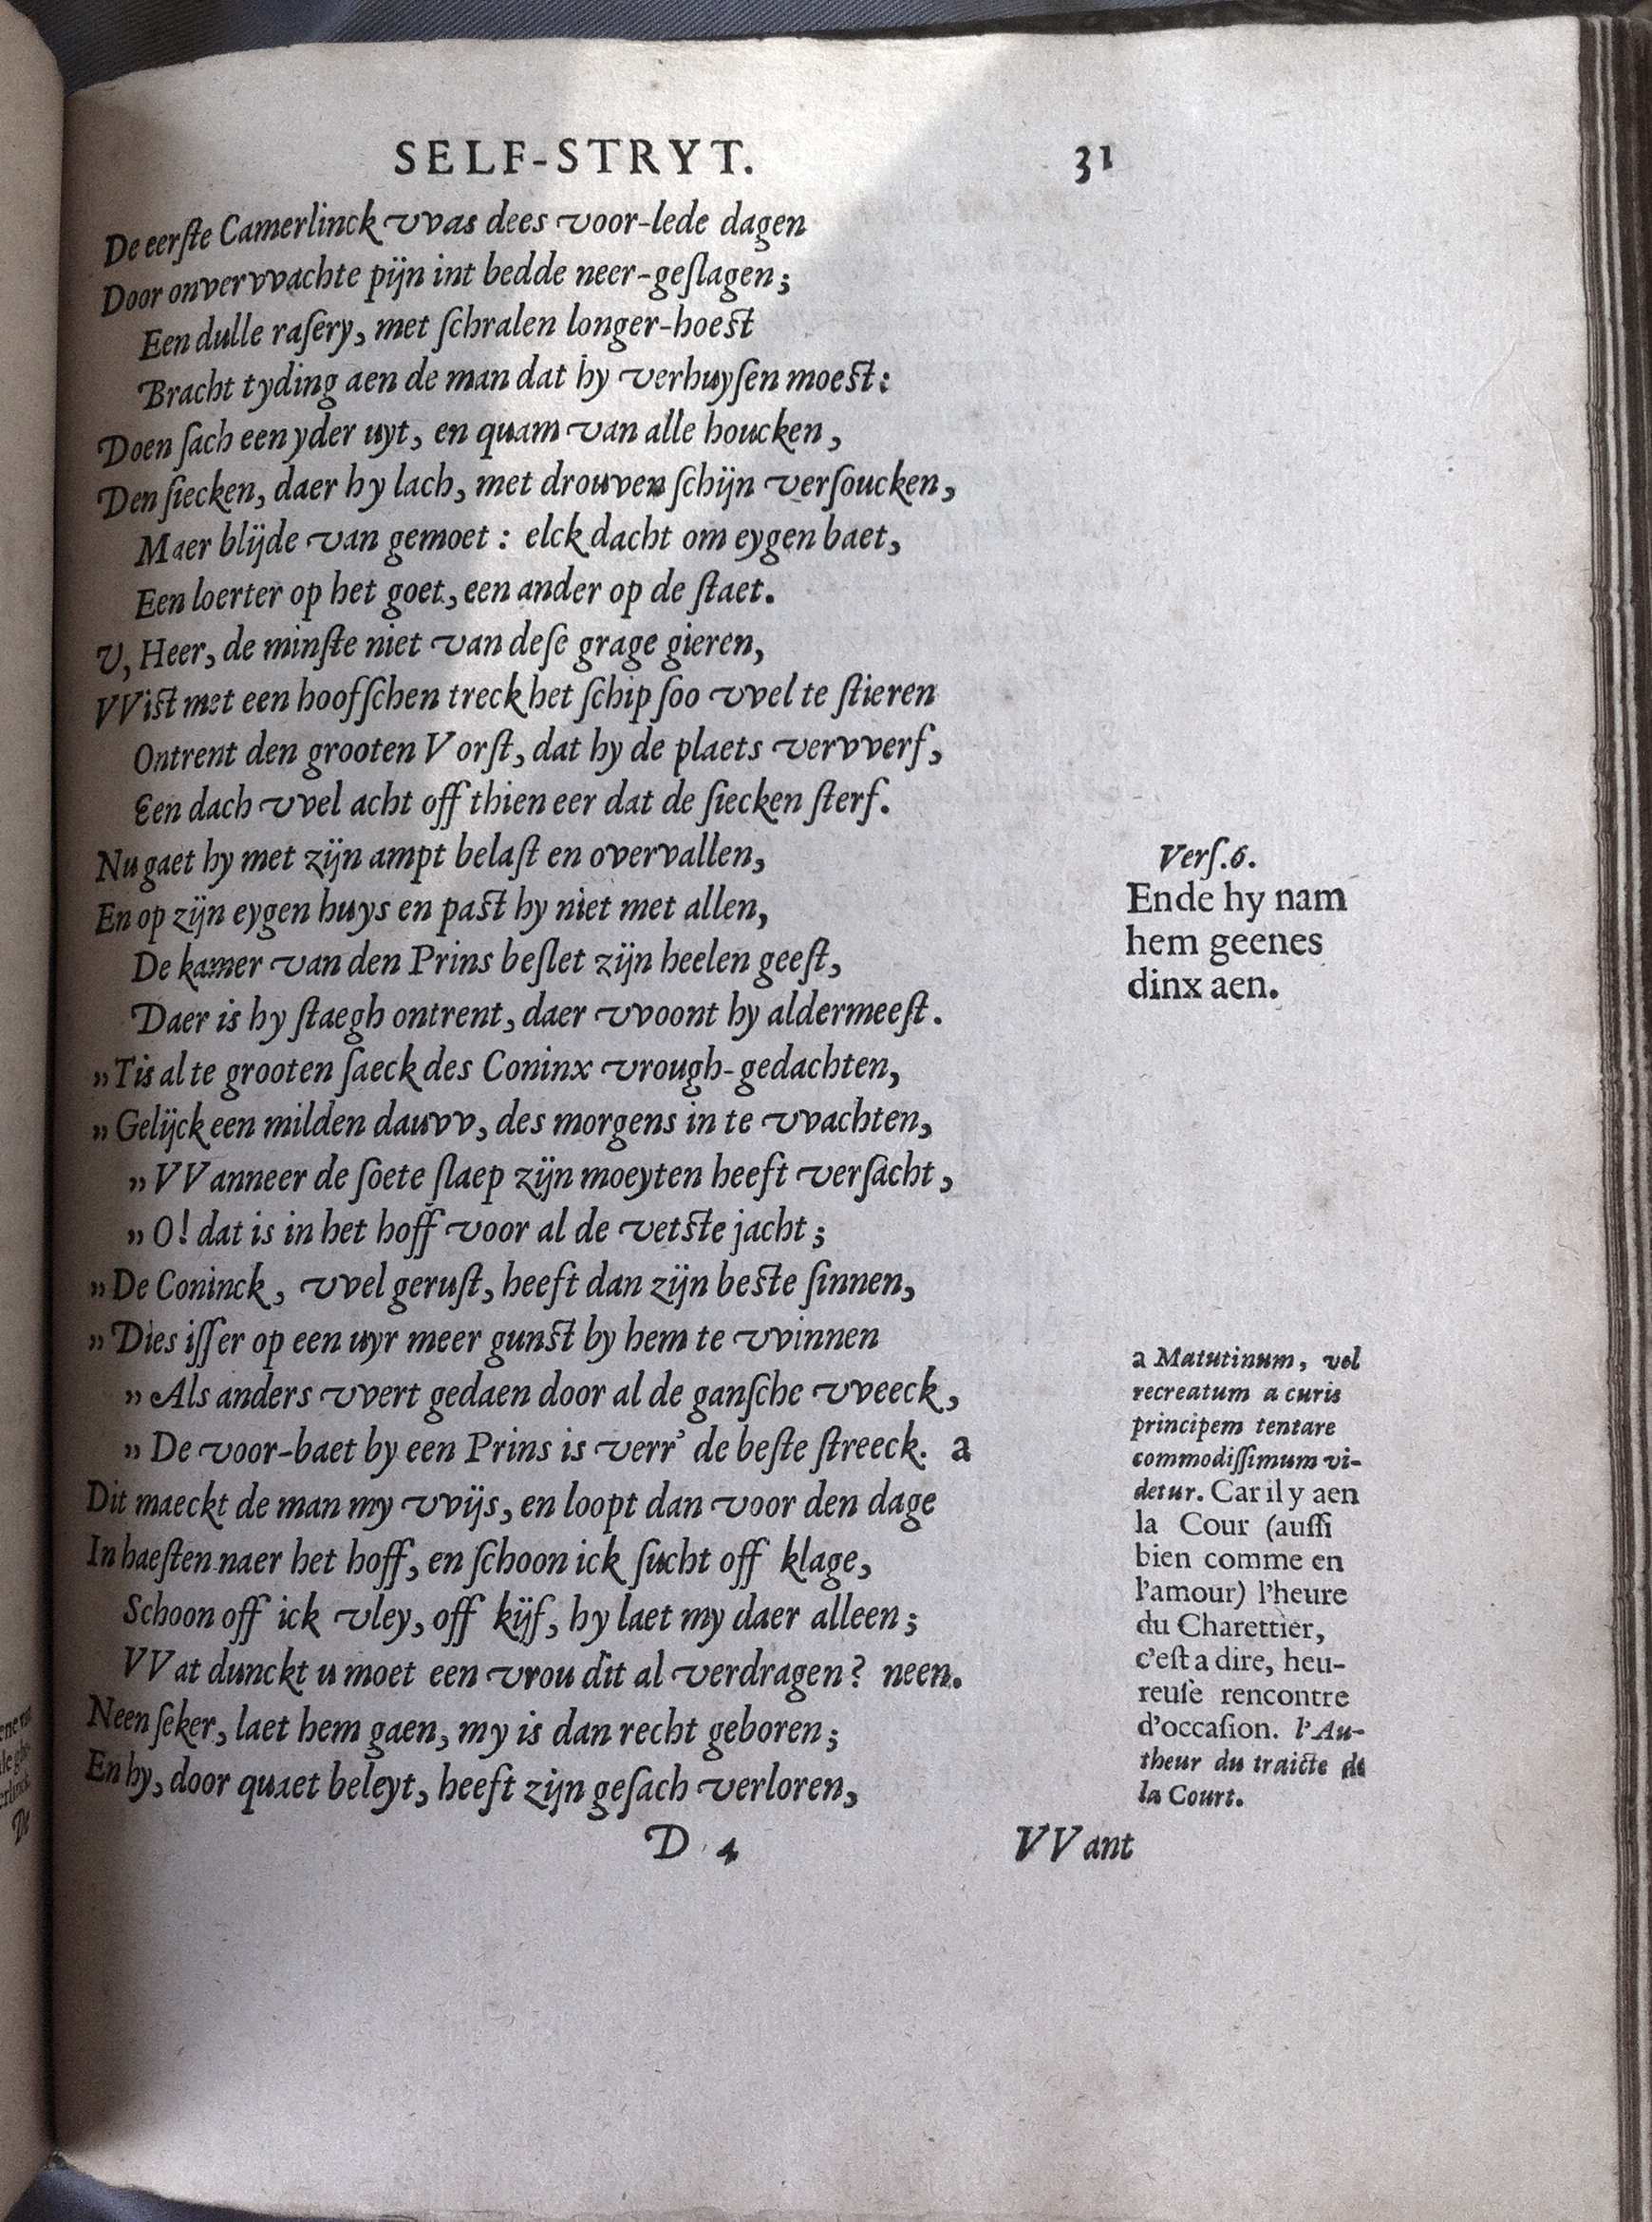 SELF-STRYT. 31
De eerſte Camerlinck vvas dees voor-lede dagen
Door onvervvachte pijn int bedde neer-geſlagen;
Een dulle raſery, met ſchralen longer-hoeſt
Bracht tyding aen de man dat hy verhuyſen moeſt:
Doen ſach een yder uyt, en quam van alle houcken,
Den ſiecken, daer hy lach, met drouven ſchijn verſoucken,
Maer blijde van gemoet: elck dacht om eygen baet,
Een loerter op het goet, een ander op de ſtaet.
V, Heer, de minſte niet van deſe grage gieren,
VViſt met een hoofſchen treck het ſchip ſoo vvel te ſtieren
Ontrent den grooten Vorſt, dat hy de plaets vervverf,
Een dach vvel acht off thien eer dat de ſiecken ſterf.
Nu gaet hy met zijn ampt belaſt en overvallen,
En op zijn eygen huys en paſt hy niet met allen,
De kamer van den Prins beſlet zijn heelen geeſt,
Daer is hy ſtaegh ontrent, daer vvoont hy aldermeeſt.
„Tis al te grooten ſaeck des Coninx vrough-gedachten,
„Gelijck een milden dauvv, des morgens in te vvachten,
„VVanneer de ſoete ſlaep zijn moeyten heeft verſacht,
„O! dat is in het hoff voor al de vetſte jacht;
„De Coninck, vvel geruſt, heeft dan zijn beſte ſinnen,
„Dies iſſer op een uyr meer gunſt by hem te vvinnen
„Als anders vvert gedaen door al de ganſche vveeck,
„De voor-baet by een Prins is verr' de beſte ſtreeck. a
Dit maeckt de man my vvijs, en loopt dan voor den dage
In haeſten naer het hoff, en ſchoon ick ſucht off klage,
Schoon off ick vley, off kijf, hy laet my daer alleen;
VVat dunckt u moet een vrou dit al verdragen? neen.
Neen ſeker, laet hem gaen, my is dan recht geboren;
En hy, door quaet beleyt, heeft zijn geſach verloren,
D 4 VVant
Verſ.6.
Ende hy nam
hem geenes
dinx aen.
a Matutinum, vel
recreatum a curis
principem tentare
commodiſſimum vi-
detur. Car il y aen
la Cour (auſſi
bien comme en
l'amour) l'heure
du Charettier,
c'eſt a dire, heu-
reuſe rencontre
d'occaſion. l'Au-
theur du traicte de
la Court.